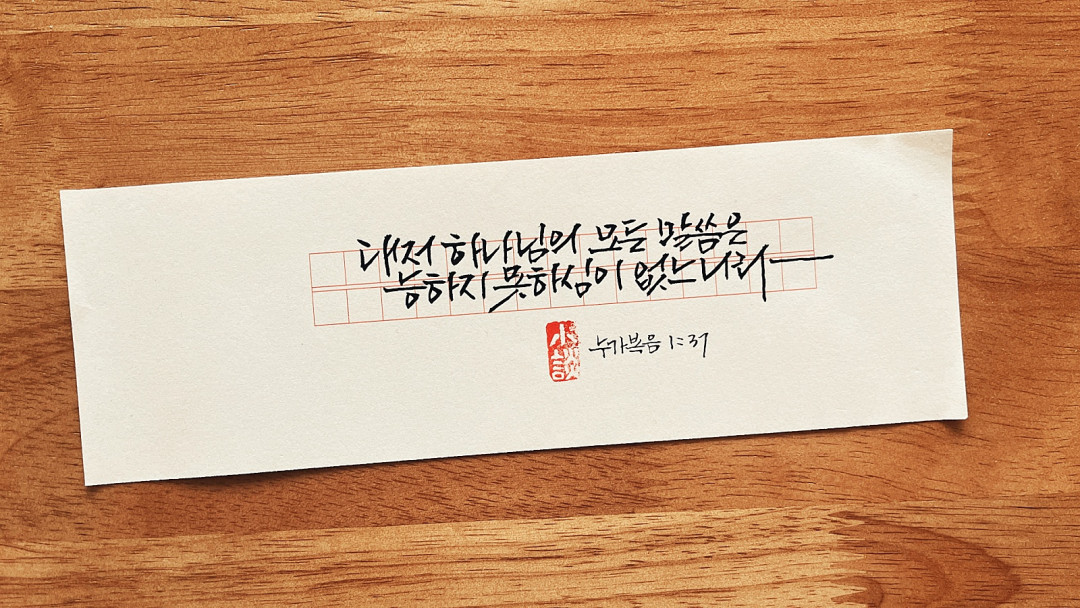 대저 하나님의 모든 말씀은
능하지 못하심이 없느니라
小談
누가복음 1:37